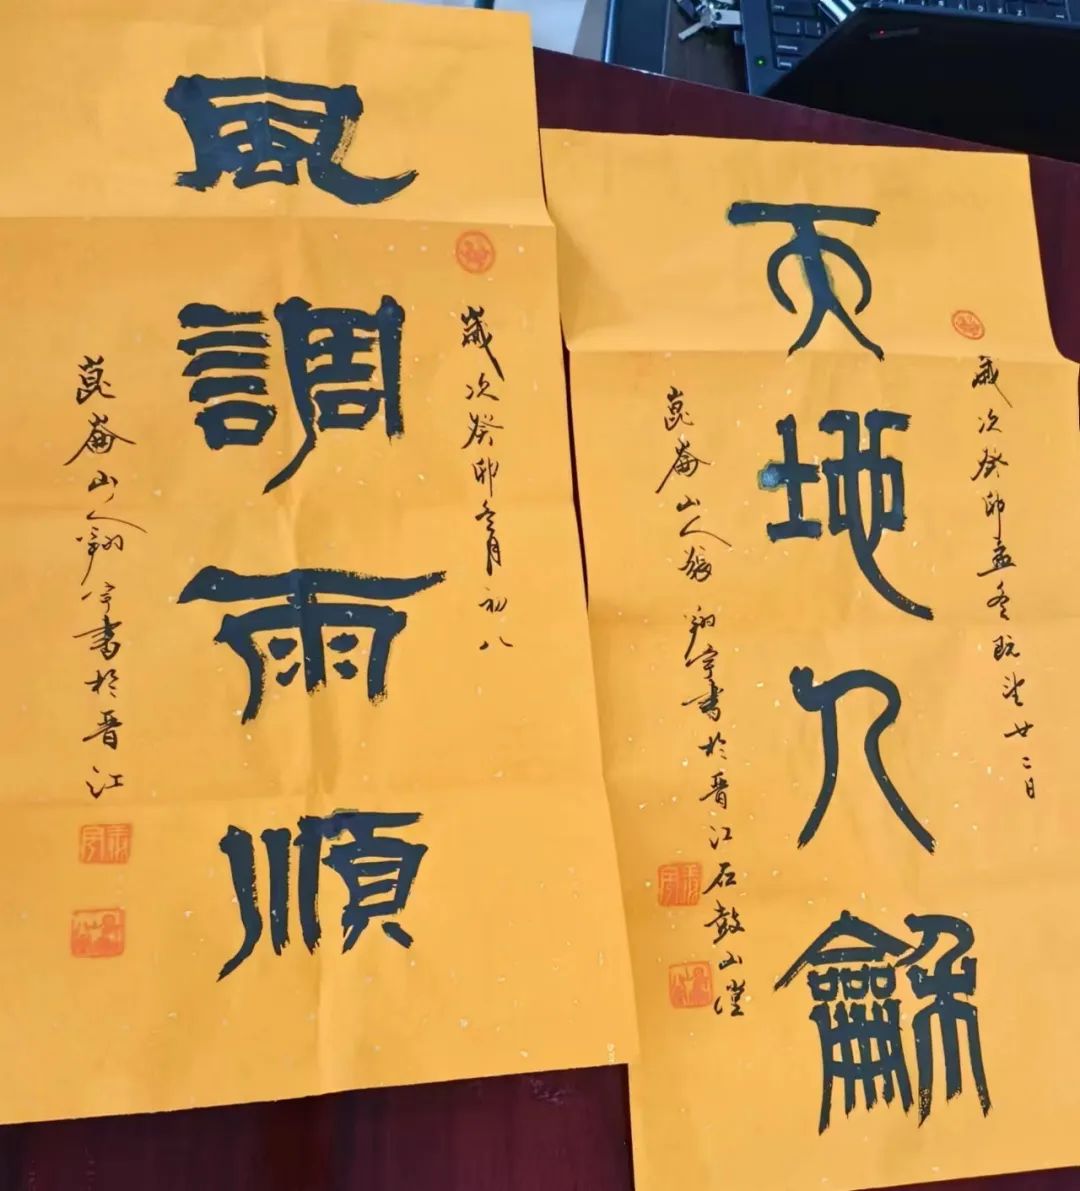 歲次癸卯孟冬既望廿二日
天地人龢
崑崙山人張翔宇書於晉江石鼓山
歲次癸卯冬月初八
風調雨順
崑崙山人翔宇書於晉江